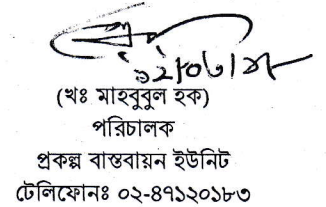 (খঃ মাহবুবুল হক)
পরিচালক
প্রকল্প বাস্তবায়ন ইউনিট
টেলিফোনঃ ০২-৪৭১২০১৮৩